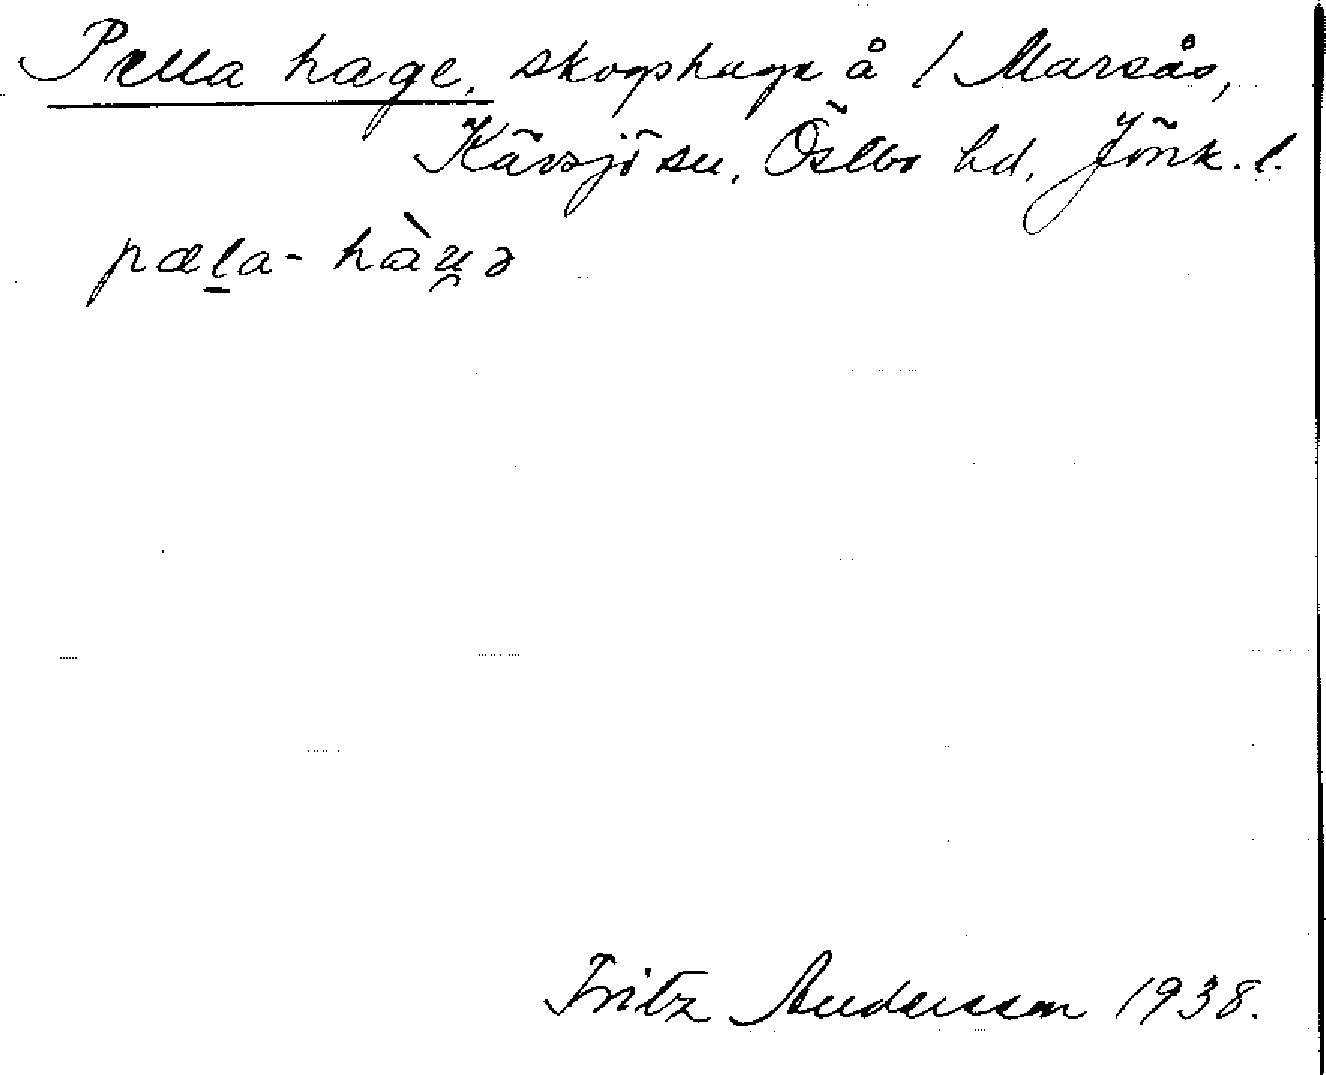 Pella hage, skogshage å 1 Marsås,
Kävsjö sn, Östbo hd, Jönk. l.
pæla- hàu̯ə
Fritz Andersson 1938.